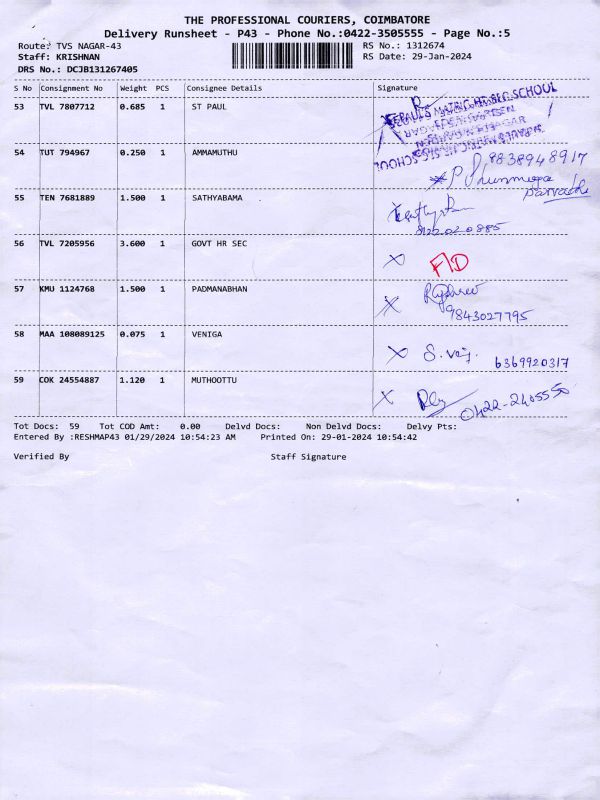 THE PROFESSIONAL COURIERS, COIMBATORE
Delivery Runsheet - P43 - Phone No.:0422-3505555 - Page No.:5
Route: TVS NAGAR-43 RS No.: 1312674
Staff: KRISHNAN RS Date: 29-Jan-2024
DRS No.: DCJB131267405
S No Consignment No Weight PCS Consignee Details Signature
53 TVL 7807712 0.685 1 ST PAUL
54 TUT 794967 0.250 1 AMMAMUTHU
9838948917
P Shunmuga
Parvathi
55 TEN 7681889 1.500 1 SATHYABAMA
8122020885
56 TVL 7205956 3.600 1 GOVT HR SEC
X F/D
57 KMU 1124768 1.500 1 PADMANABHAN
9843027795
58 MAA 108089125 0.075 1 VENIGA
X S. Veij. 6369920317
59 COK 24554887 1.120 1 MUTHOOTTU
X 0422-2405550
Tot Docs: 59 Tot COD Amt: 0.00 Delvd Docs: Non Delvd Docs: Delvy Pts:
Entered By :RESHMAP43 01/29/2024 10:54:23 AM Printed On: 29-01-2024 10:54:42
Verified By Staff Signature